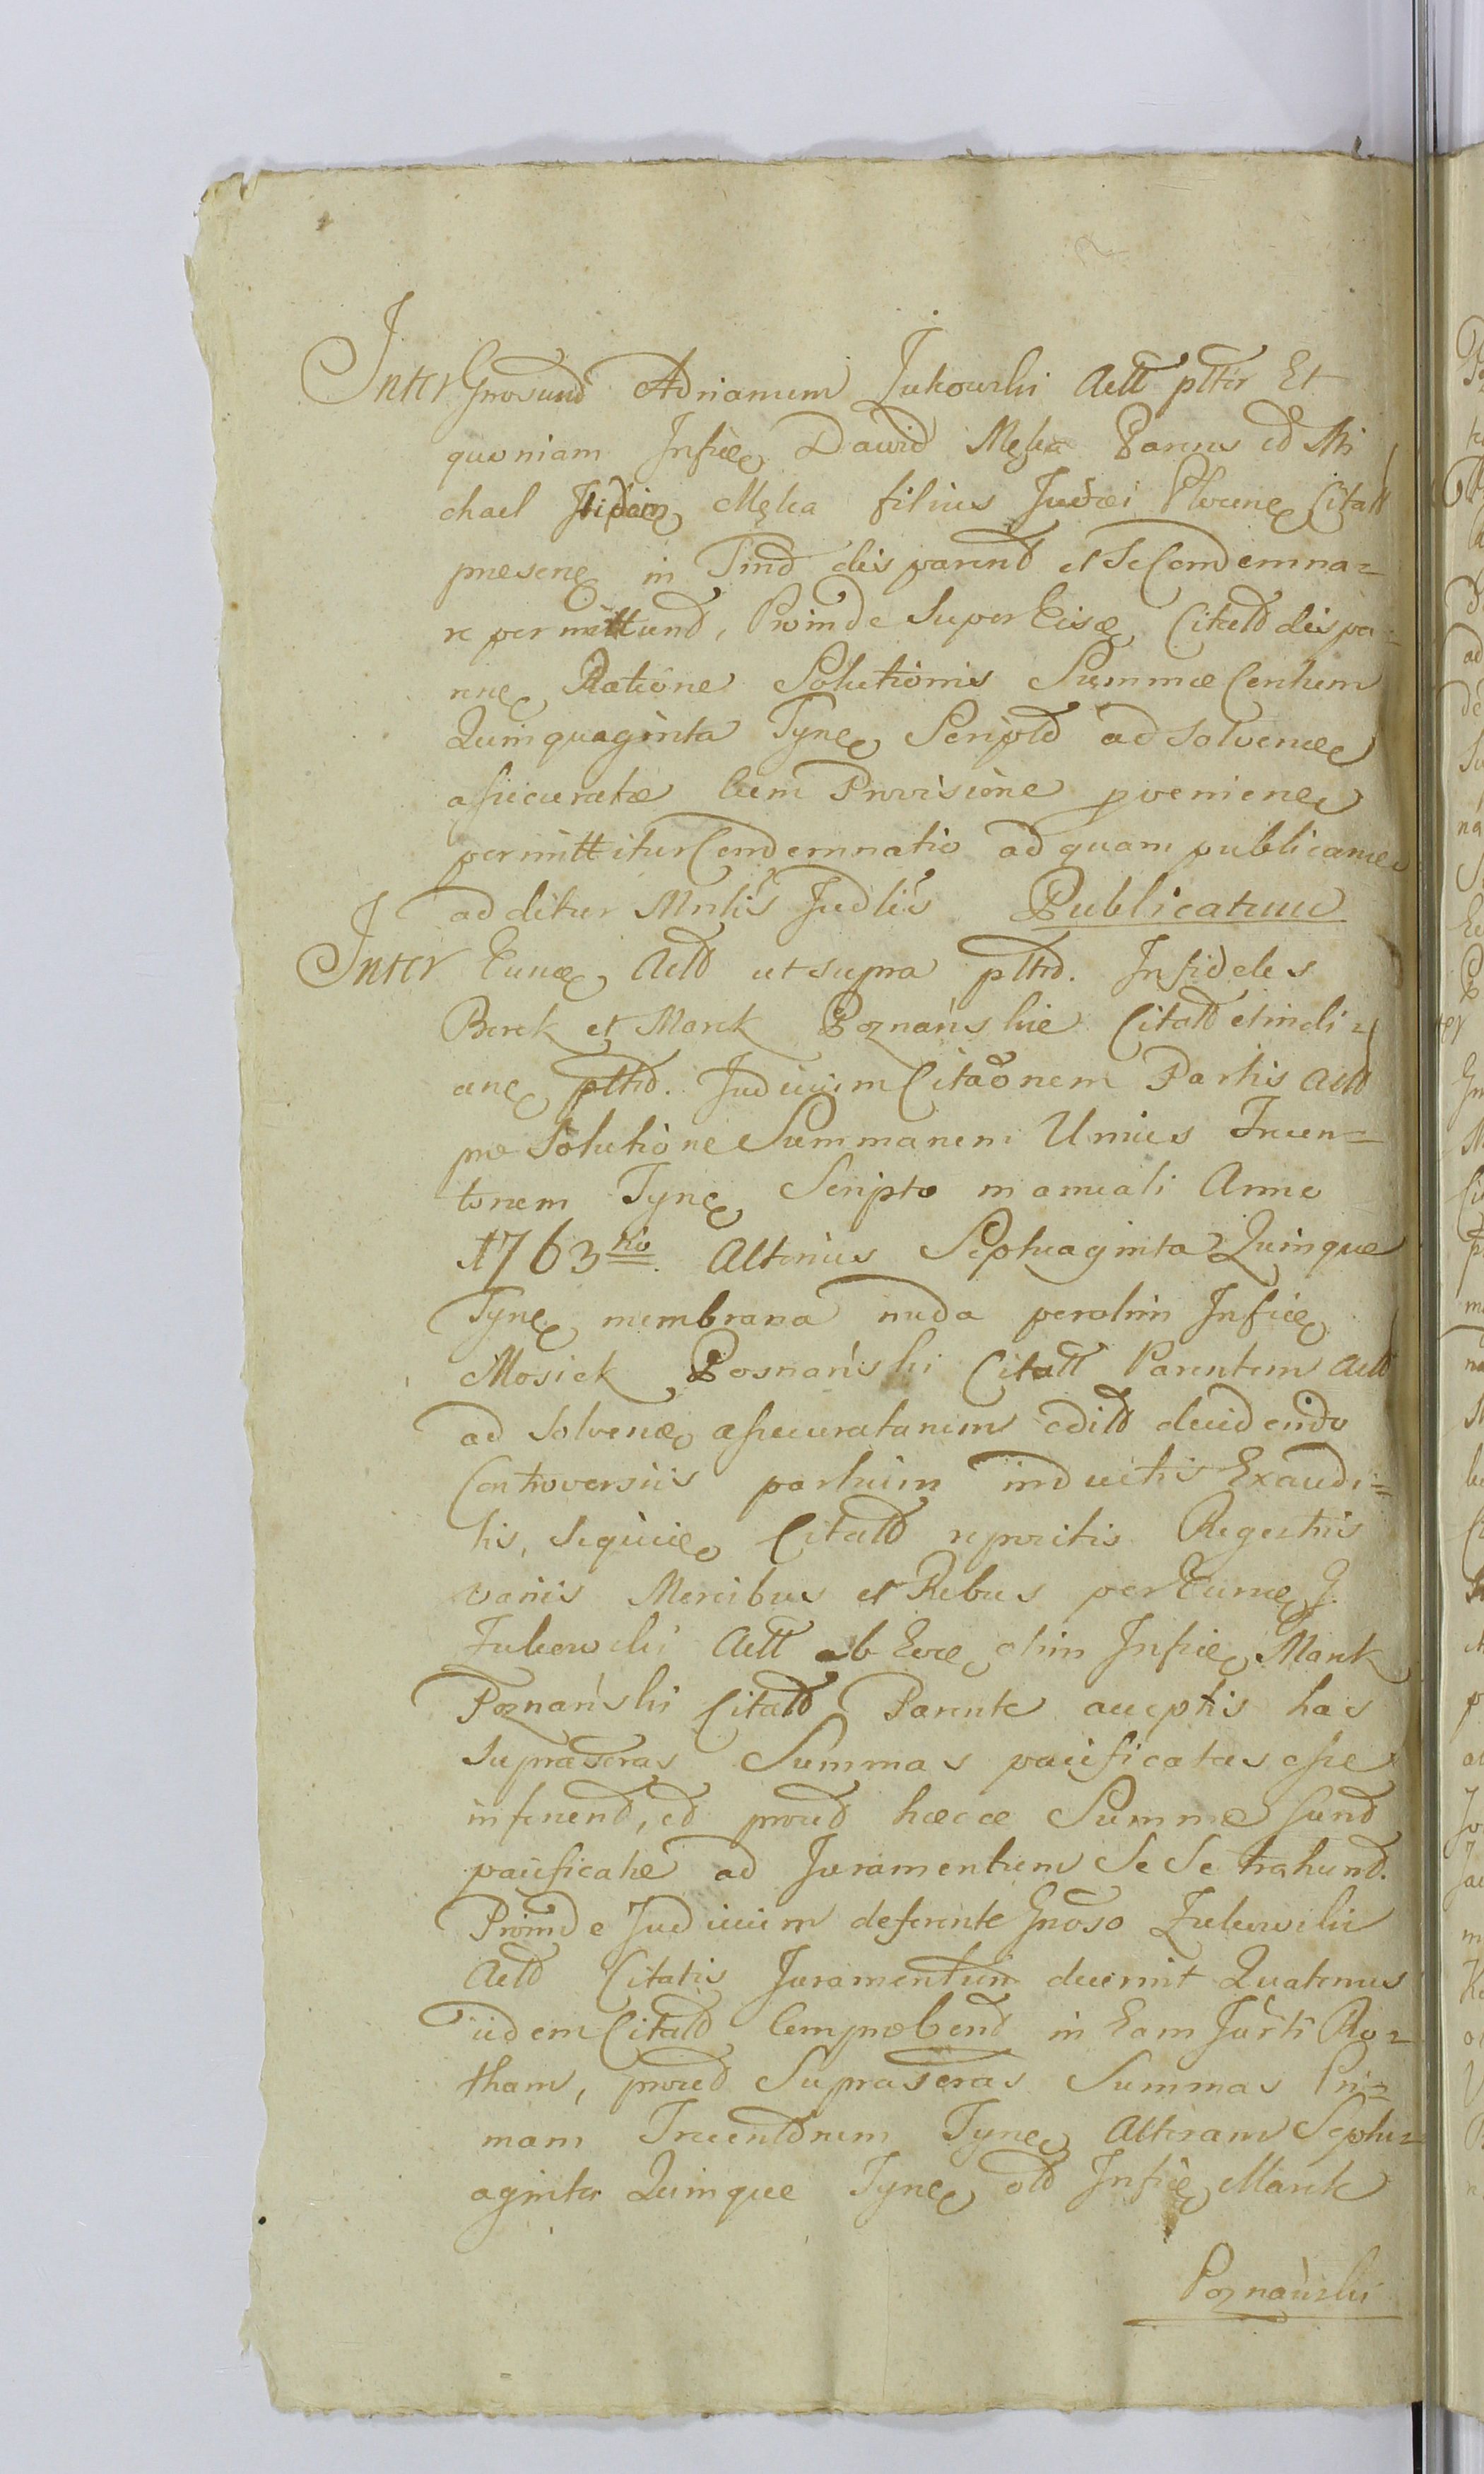 Inter Gnosum Adrianum Żukowski Actt pltēr Et
quoniam Infice Dawid Męka Parens ed Mi
chael Męka filius Judæi Plocene Citatt
presene in Tmd disparend et Se Condemna=
re permittund, Proinde Super Eisde Citatd dispa=
rene Ratione Solutionis Summæ Centum
Quinquaginta Tyne Scriptd ad Solvende
assecuratæ Cum Provisione proveniene
permittitur Condemnatio ad quam publicande
additur Mnlis Judlis Publicatum
Inter Eunde Actd ut supra pltd. Infideles
Berek et Marek Poznańskie Citatd et incli=
ane pltd. Judicium Citaōnem Partis Actd
pro Solutione Summarum Unius Trecen=
torum Tyne Scripto manuali Anno
1763tio. Alterius Septuaginta Quinque
Tyne membrana nuda per olim Infice
Mosiek Posnański Citatt Parentem Actt
ad Solvende assecuratarum editd decidendo
Controversiis partium inductis Exaudi=
tis, Siquide Citatd repositis Regestris
variis Mercibus et Rebus per Eunde G.
Żukowski Actt ab Eode olim Infice Mark
Poznański Citatd Parente acceptis has
suprascras Summas pacificatas esse
inferend, ed proud hæcce Summæ sund
pacificatæ ad Juramentum Se Se trahund.
Proinde Judicium deferente Gnoso Żukowski
Actd Citatis Juramentum decernit Quatenus
iidem Citatd Comprobend in Eam Jurti Ro=
tham, proud Suprascras Summas Pri=
mam Trecentorum Tyne Alteram Septu=
aginta Quinque Tyne old Infice Marek
Poznański